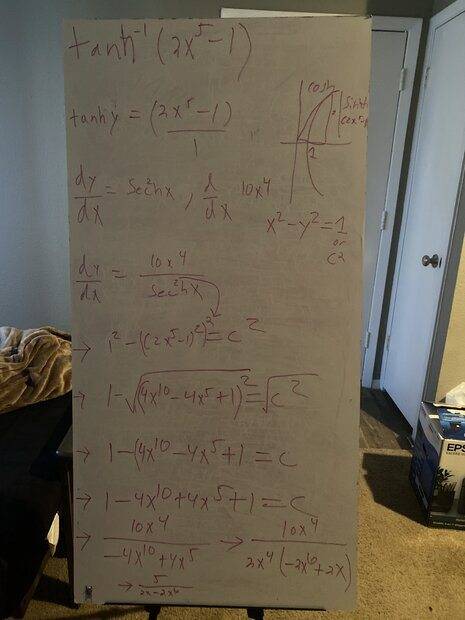 tanh⁻¹ (2x⁵-1)
cosh
tanhy = (2x⁵-1)/1
1
dy/dx = Sec²hx , d/dx 10x⁴
x²-y²=1
or
c²
dy/dx = 10x⁴/Sec²hx
→ 1²-((2x⁵-1)²)²=c²
→ 1-√(4x¹⁰-4x⁵+1)²=√c²
→ 1-(4x¹⁰-4x⁵+1=c
→ 1-4x¹⁰+4x⁵+1=c
→ 10x⁴/-4x¹⁰+4x⁵ → 10x⁴/2x⁴(-2x⁶+2x)
→ 5/2x-2x⁶
EPS